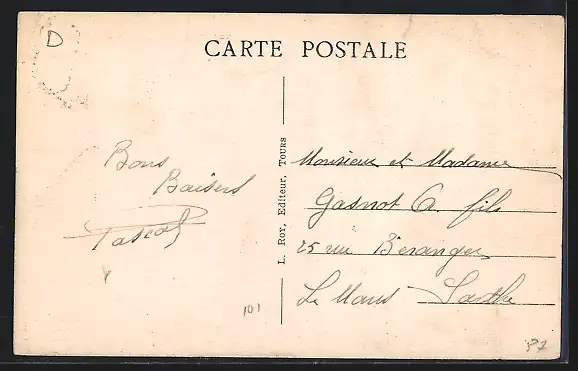 D
CARTE POSTALE
Bons
Baisers
Pascal
L. Roy, Editeur, Tours
Monsieur et Madame
Gasnot A. fils
25 rue Béranger
Le Mans Sarthe
101